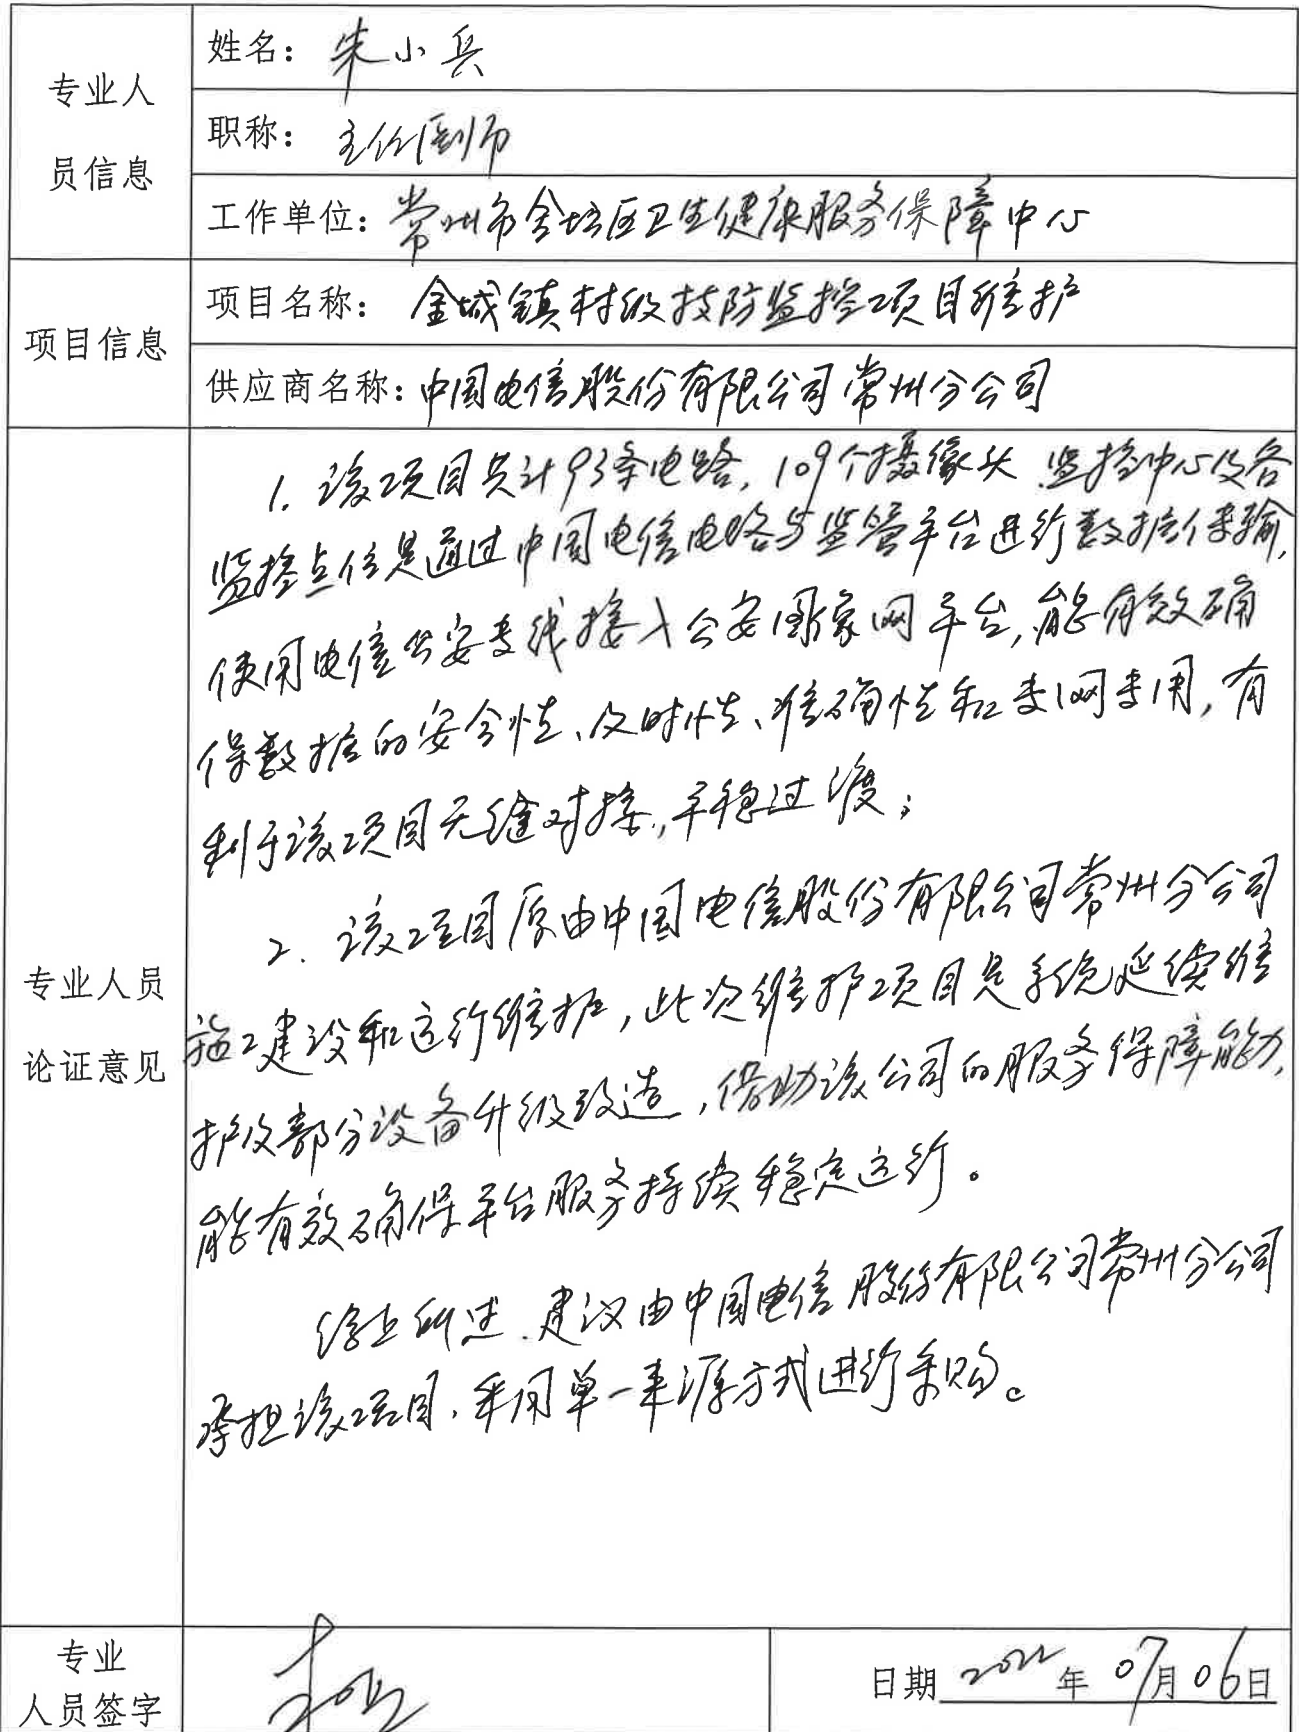 专业人
员信息
姓名：朱小兵
职称：主任医师
工作单位：常州市金坛区卫生健康服务保障中心
项目信息
项目名称：金城镇村级技防监控项目维护
供应商名称：中国电信股份有限公司常州分公司
专业人员
论证意见
1. 该项目共计93条电路，109个摄像头，监控中心及各
监控点位是通过中国电信电路与监管平台进行数据传输，
使用电信公安专线接入公安图象网平台，能有效确
保数据的安全性、及时性、准确性和专网专用，有
利于该项目无缝对接，平稳过渡；
2. 该项目原由中国电信股份有限公司常州分公司
施工建设和运行维护，此次维护项目是系统延续维
护及部分设备升级改造，借助该公司的服务保障能力，
能有效确保平台服务持续稳定运行。
综上所述，建议由中国电信股份有限公司常州分公司
承担该项目，采用单一来源方式进行采购。
专业
人员签字
日期 2022年07月06日